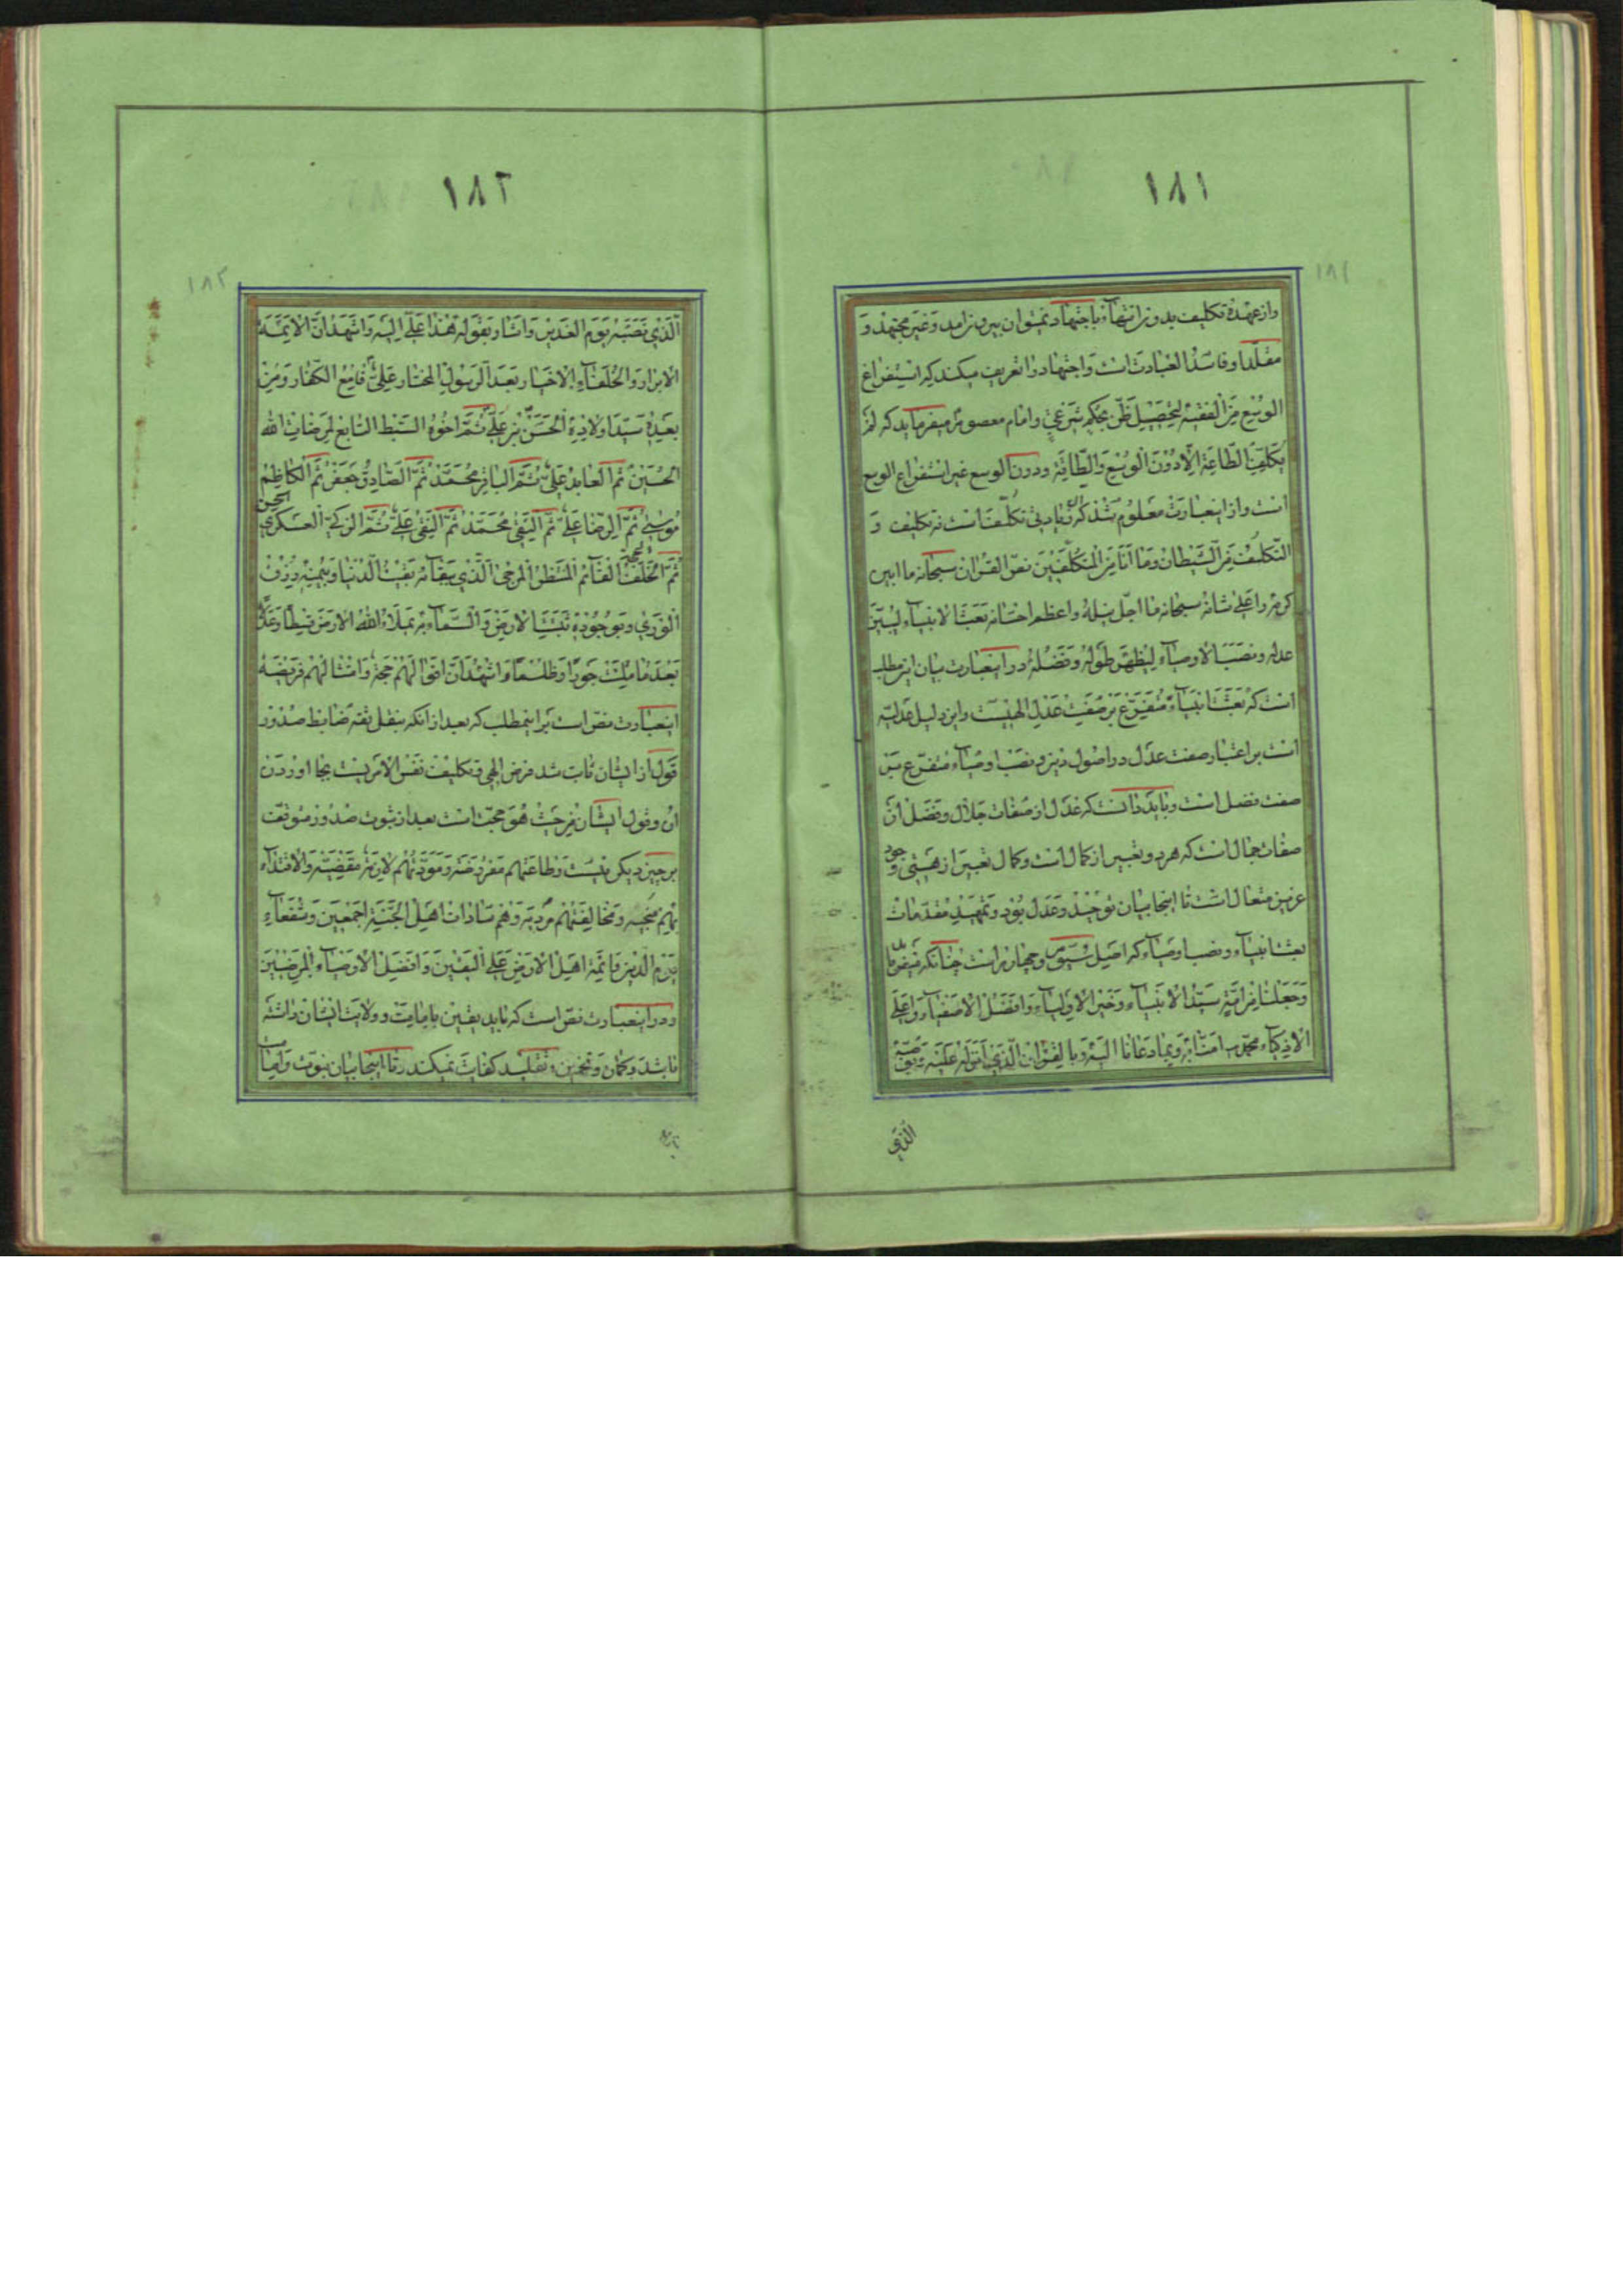 ١٨١
١٨١
واز عهدۀ تکلیف بدون انتهاء باجتهاد نمیتوان بیرون امد وغیر مجتهد و
مقلد او فاسد العبادت است واجتهاد را تعریف میکند که استفراغ
الوسع من الفقیه لتحصیل ظن بحکم شرعی وامام معصوم میفرماید که لم
یکلفنا الطاعة الا دون الوسع والطاقة ودون الوسع غیر استفراغ الوسع
است واز اینعبارت معلوم شد که ان زیادتی تکلف است نه تکلیف و
التکلیف من الشیطان وما انا من المتکلفین نص القران سبحانه ما ابین
کرمه واعلی شانه سبحانه ما اجل نیله واعظم احسانه بعث الانبیاء لیبین
عدله ونصب الاوصیاء لیظهر طوله وفضله در اینعبارت بیان این مطلب
است که بعثت انبیاء متفرع بر صفت عدل الهیست واین دلیل عدلیه
است بر اعتبار صفت عدل در اصول دین ونصب اوصیاء متفرع بر
صفت فضل است وباید دانست که عدل از صفات جلال وفضل از
صفات جمال است که هر دو تعبیر از کمال است وکمال تعبیر از هستی وجود
عزیز متعال است تا اینجا بیان توحید وعدل بود وتمهید مقدمات
بعث انبیاء ونصب اوصیاء که اصل سیوم وچهارم است چنانکه میفرماید
وجعلنا من امة سید الانبیاء وخیر الاولیاء وافضل الاصفیاء واعلی
الازکیاء محمد امنا به وبما دعانا الیه وبالقران الذی انزله علیه وبوصیه
الذی
١٨٢
١٨٢
الذی نصبه یوم الغدیر واشار بقوله هذا علی الیه واشهد ان الایمة
الابرار والخلفاء الاخیار بعد الرسول المختار علی قامع الکفار ومن
بعده سید اولاده الحسن بن علی ثم اخوه السبط التابع لمرضات الله
الحسین ثم العابد علی ثم الباقر محمد ثم الصادق جعفر ثم الکاظم
موسی ثم الرضا علی ثم التقی محمد ثم النقی علی ثم الزکی العسکری الحسن
ثم الحجة الخلف القائم المنتظر المرجی الذی ببقائه بقیت الدنیا وبیمنه رزق
الوری وبوجوده ثبتت الارض والسماء به یملاء الله الارض قسطا وعدلا
بعد ما ملئت جورا وظلما واشهد ان اقوالهم حجة وامتثالهم فریضة
اینعبارت نص است بر اینمطلب که بعد از انکه بنقل ثقه ضابط صدور
قول از ایشان ثابت شد فرض الهی وتکلیف نفس الامریست بجا اوردن
ان وقول ایشان من حیث هو حجت است بعد از ثبوت صدور متوقف
بر چیز دیگر نیست وطاعتهم مفروضة ومودتهم لازمة مقضیة والاقتداء
بهم منجیة ومخالفتهم مردیة وهم سادات اهل الجنة اجمعین وشفعاء
یوم الدین وایمة اهل الارض علی الیقین وافضل الاوصیاء المرضیین
ودر اینعبارت نص است که باید یقین بامامت وولایت ایشان داشته
باشد وکمان وتخمین وتقلید کفایت نمیکند وتا اینجا بیان نبوت وامامت